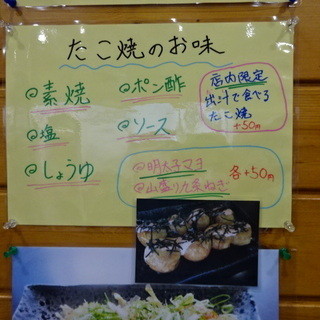 たこ焼のお味
@素焼
@ポン酢
@塩
@ソース
@しょうゆ
店内限定
出汁で食べる
たこ焼
+50円
@明太子マヨ
@山盛り九条ねぎ
各+50円